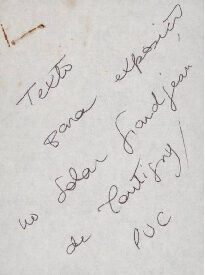 Texto
para exposição
no Solar Grandjean
de Montigny/
PUC